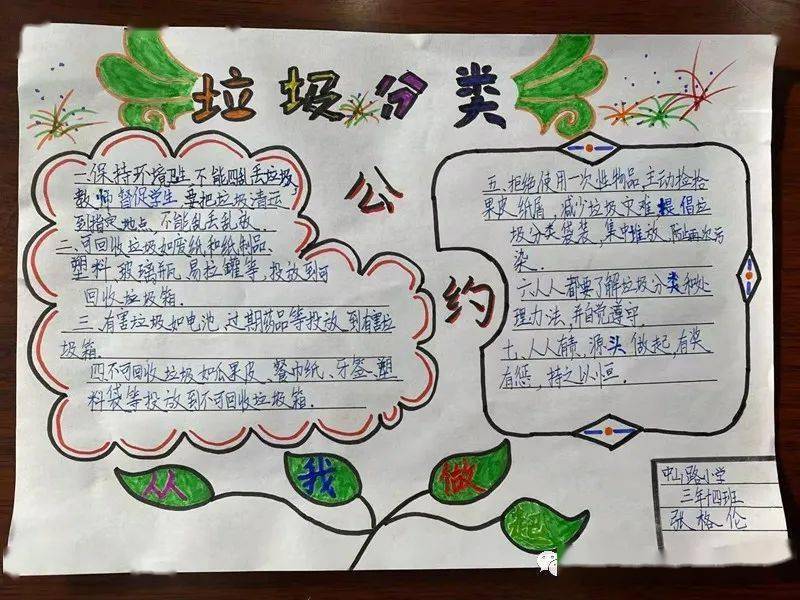 垃圾分类
公约
一.保持环境卫生 不能四乱丢垃圾、
教师督保学生 要把垃圾清运
到指定地点 不能乱丢乱放.
二.可回收垃圾如废纸和纸制品、
塑料,玻璃瓶、易拉罐等,投放到可
回收垃圾箱.
三.有害垃圾如电池 过期药品等投放到有害垃
圾箱.
四.不可回收垃圾如瓜果皮、餐巾纸、牙签、塑
料袋等投放到不可回收垃圾箱.
五、拒绝使用一次性物品,主动捡拾
果皮纸屑,减少垃圾灾难 提倡垃
圾分类袋装,集中堆放,防止再次污
染.
六.人人都要了解垃圾分类和处
理办法,并自觉遵守
七、人人有责,源头做起,有奖
有惩,持之以恒.
从我做起
中山路小学
三年十四班
张格伦